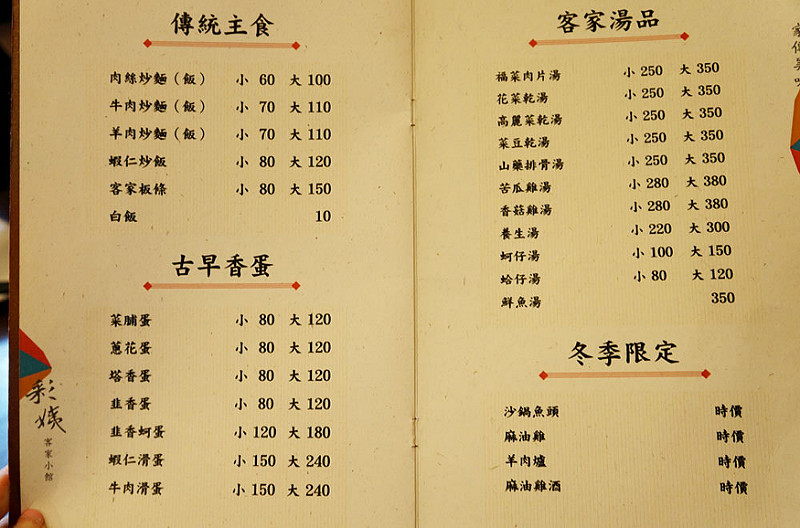 傳統主食
肉絲炒麵（飯） 小 60 大 100
牛肉炒麵（飯） 小 70 大 110
羊肉炒麵（飯） 小 70 大 110
蝦仁炒飯 小 80 大 120
客家板條 小 80 大 150
白飯 10
古早香蛋
菜脯蛋 小 80 大 120
蔥花蛋 小 80 大 120
塔香蛋 小 80 大 120
韭香蛋 小 80 大 120
韭香蚵蛋 小 120 大 180
蝦仁滑蛋 小 150 大 240
牛肉滑蛋 小 150 大 240
彩姨
客家小館
客家湯品
福菜肉片湯 小 250 大 350
花菜乾湯 小 250 大 350
高麗菜乾湯 小 250 大 350
菜豆乾湯 小 250 大 350
山藥排骨湯 小 250 大 350
苦瓜雞湯 小 280 大 380
香菇雞湯 小 280 大 380
養生湯 小 220 大 300
蚵仔湯 小 100 大 150
蛤仔湯 小 80 大 120
鮮魚湯 350
冬季限定
沙鍋魚頭 時價
麻油雞 時價
羊肉爐 時價
麻油雞酒 時價